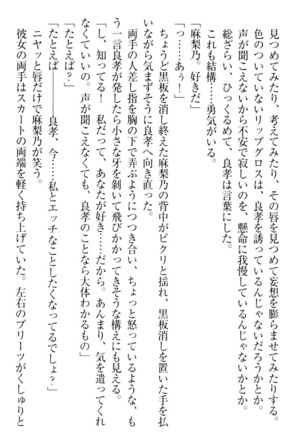 見つめてみたり、考えてみたり、その唇を見つめて妄想を膨らませてみたりする。
色のついていないリップグロスは、良孝を誘っているんじゃないだろうかとか。
声が聞こえないから不安で寂しいのを、懸命に我慢しているんじゃないかとか。
総ざらい、ひっくるめて、良孝は言葉にした。
これも結構――勇気がいる。
「麻梨乃。好きだ」
「っ……あぅ！」
ちょうど黒板を消し終えた麻梨乃の背中がビクリと揺れ、黒板消しを置いた手を払
いながら気まずそうに良孝へ向き直った。
両手の人差し指を胸の下で弄ぶようにつつき合い、ちょっと怒っているような、も
う一言良孝が発したら小さな牙を剝いて飛びかかってきそうな構えにも見える。
「し、知ってる！　私だって、あなたが好き……だから。あんまり、気を遣ってくれ
なくていいの。声が聞こえなくても、良孝のことなら大体わかるもの」
「たとえば？」
「たとえば――良孝、今……私とエッチなことしたくなってるでしょ？」
ニヤッと唇だけで麻梨乃が笑う。
彼女の両手はスカートの両端を軽く持ち上げていた。左右のプリーツがくしゅりと